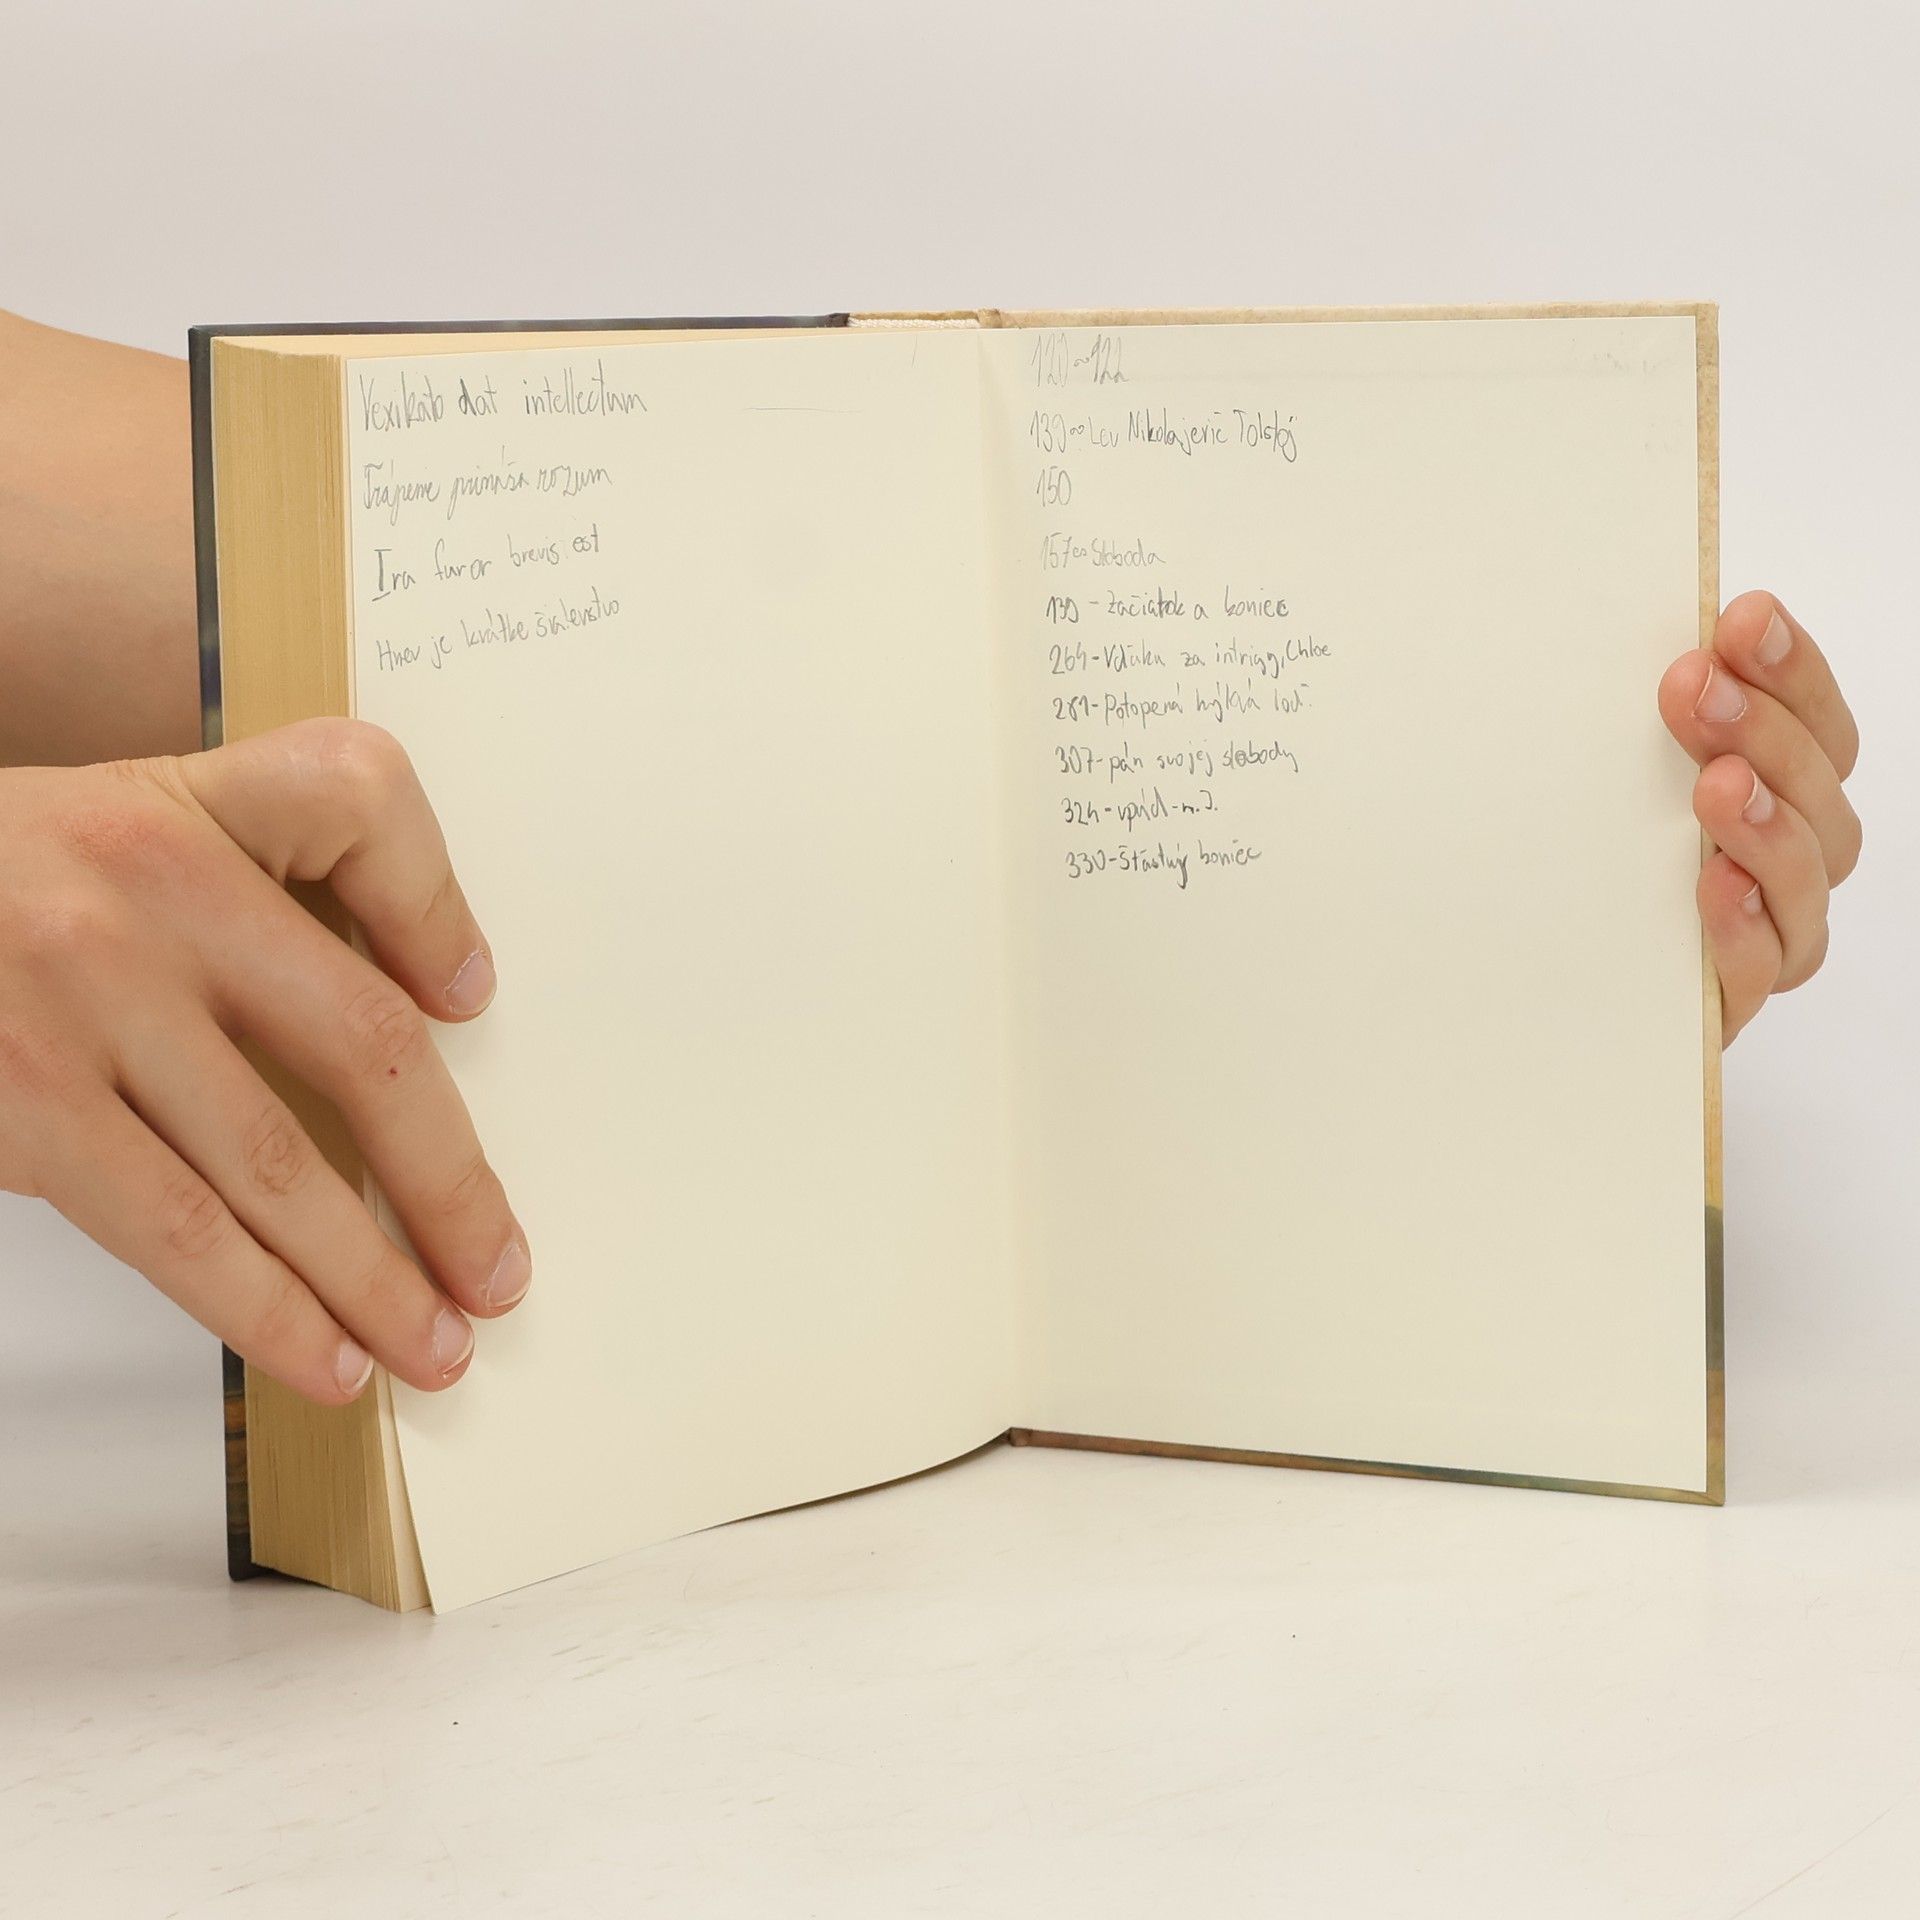 Vexikato dat intellectum
Trápenie prináša rozum
Ira furor brevis est
Hnev je krátke šialenstvo
120~122
139~Lev Nikolajevič Tolstoj
150
157~Sloboda
139 - Začiatok a koniec
264-Vďaka za intrigy, Chloe
281-Potopená loď
307-pán svojej slobody
324-
330-Šťastný koniec